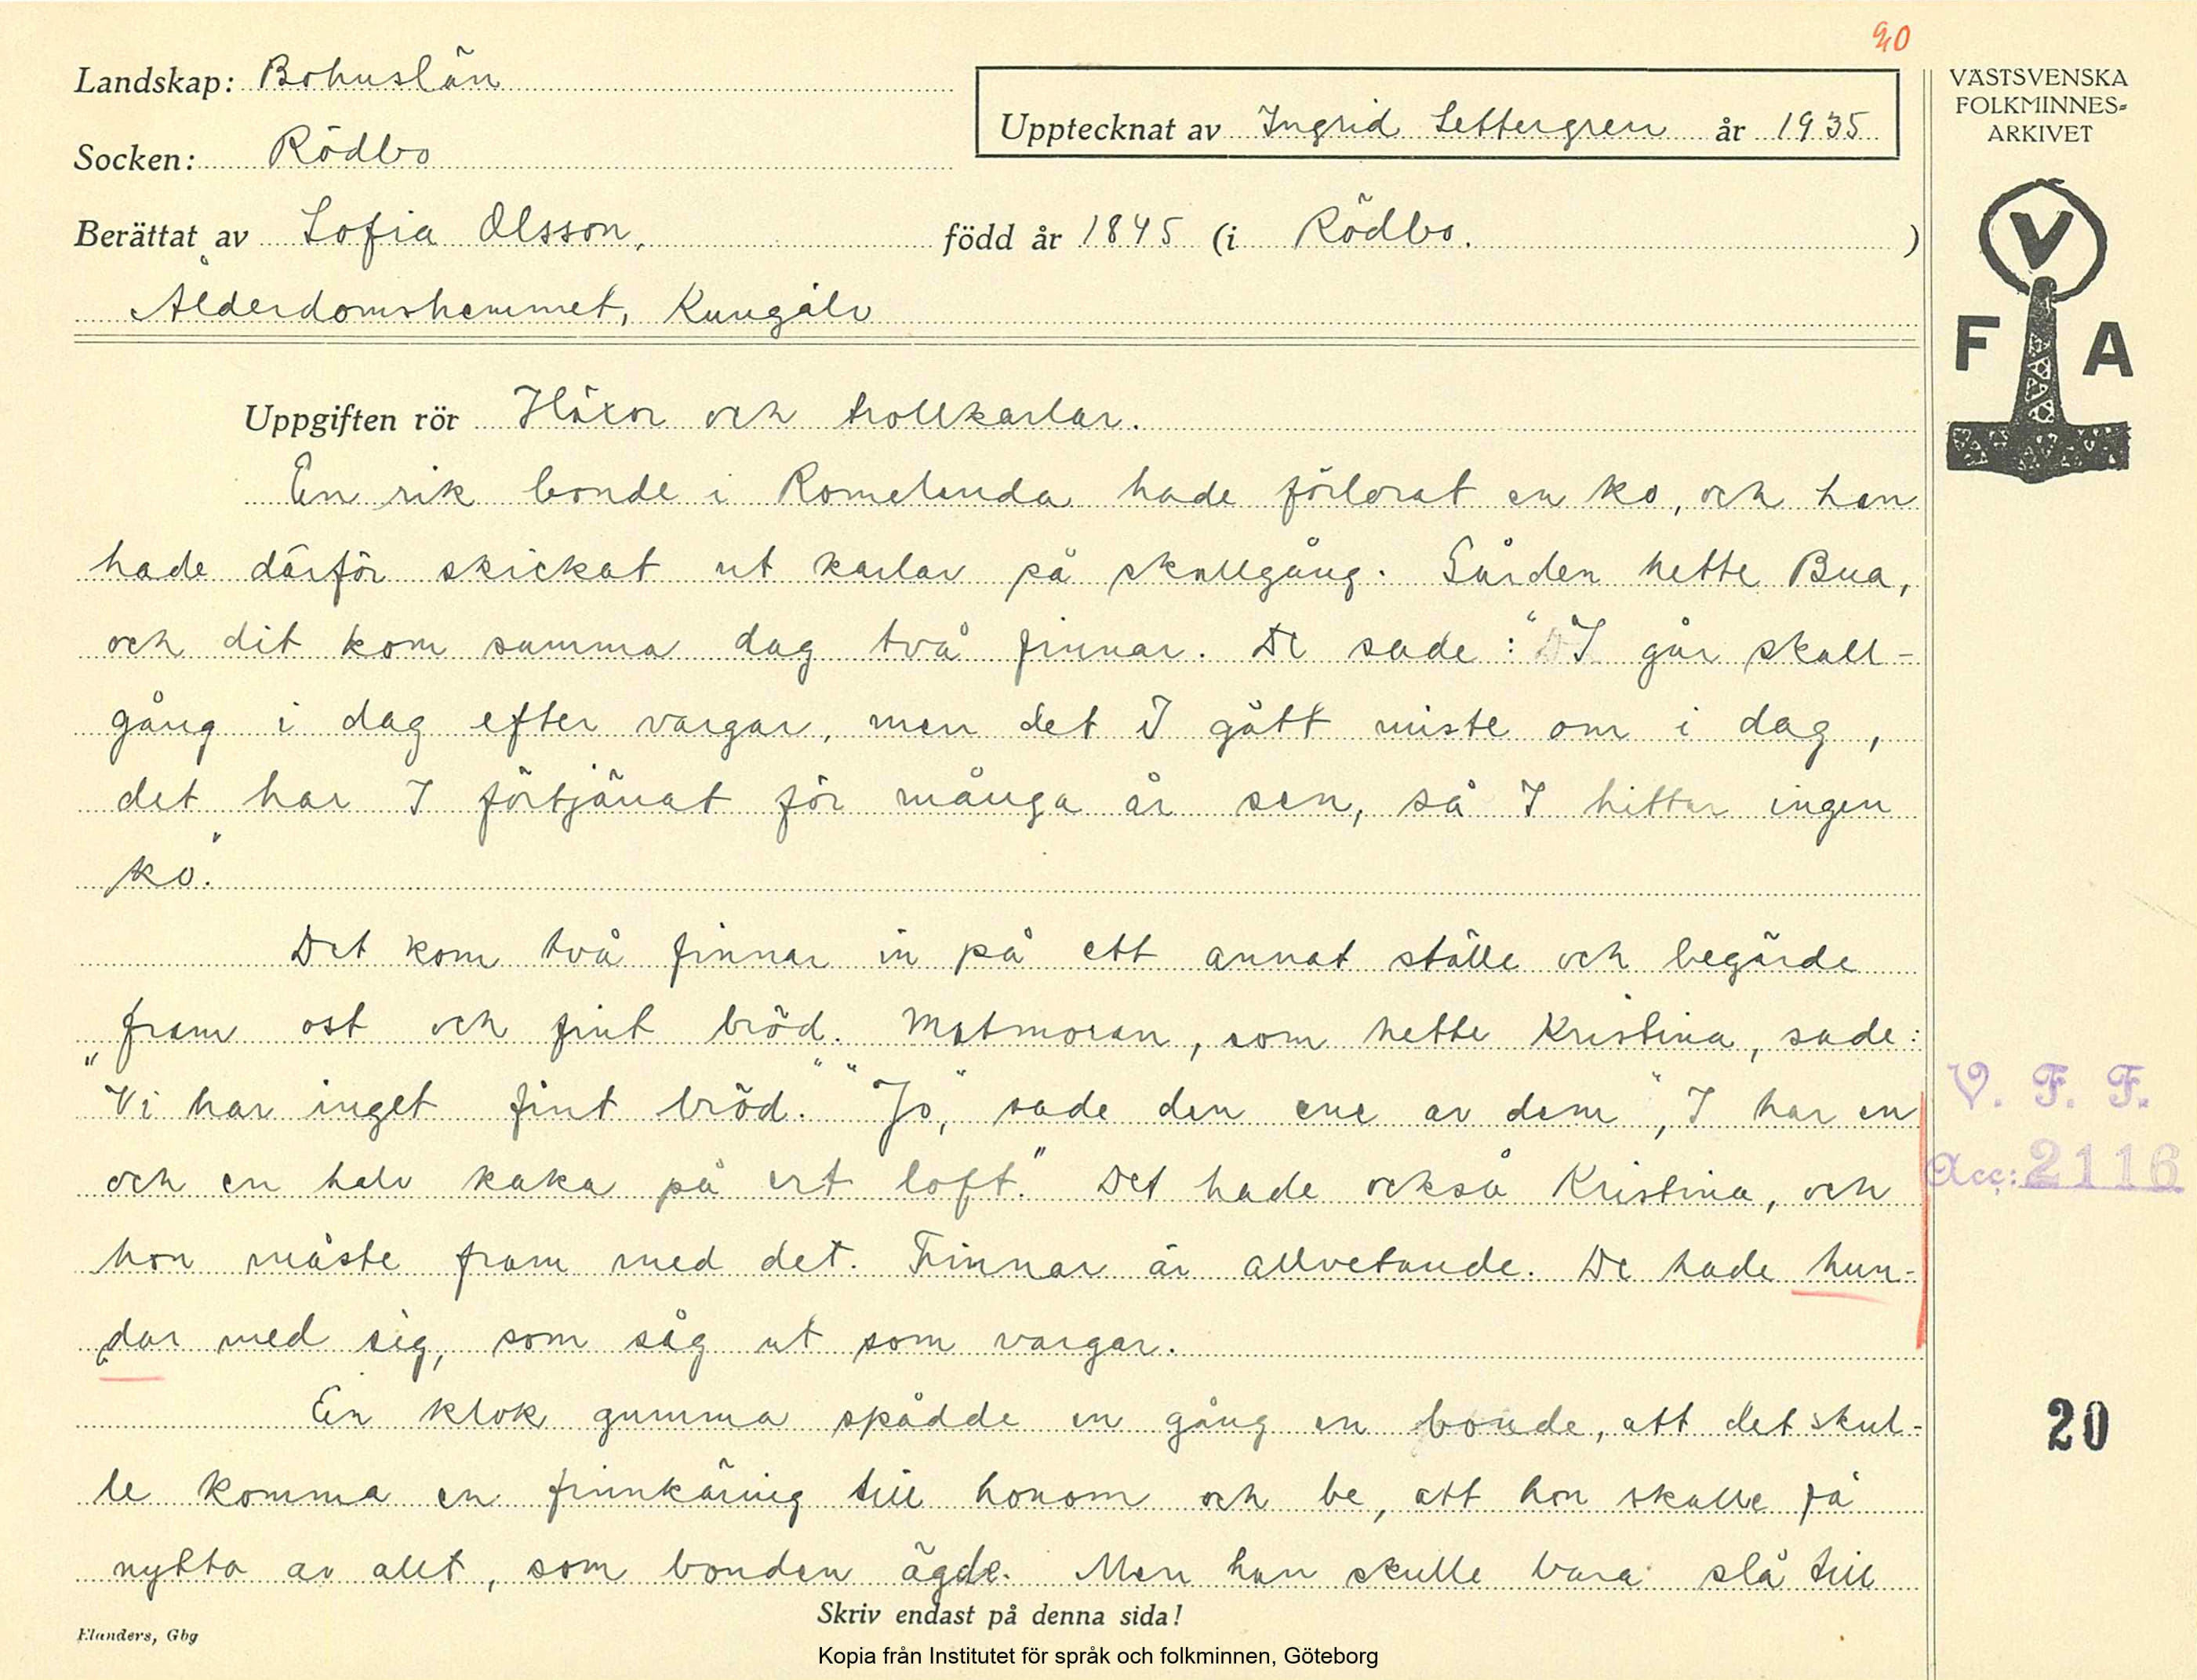 20
Landskap: Bohuslän
Socken: Rödbo
Upptecknat av Ingrid Settergren år 1935
Berättat av Sofia Olsson, född år 1845 (i Rödbo. )
Ålderdomshemmet, Kungälv
VÄSTSVENSKA
FOLKMINNES-
ARKIVET
V
F A
Uppgiften rör Häxor och trollkarlar.
En rik bonde i Romelanda hade förlorat en ko, och han
hade därför skickat ut karlar på skallgång. Gården hette Bua,
och dit kom samma dag två finnar. De sade: "I går skall-
gång i dag efter vargar, men det I gått miste om i dag,
det har I förtjänat för många år sen, så I hittar ingen
ko."
Det kom två finnar in på ett annat ställe och begärde
fram ost och fint bröd. Matmoran, som hette Kristina, sade:
"Vi har inget fint bröd." "Jo," sade den ene av dem, "I har en
och en halv kaka på ert loft." Det hade också Kristina, och
hon måste fram med det. Finnar är allvetande. De hade hun-
dar med sig, som såg ut som vargar.
En klok gumma spådde en gång en bonde, att det skul-
le komma en finnkäring till honom och be, att hon skulle få
nytta av allt, som bonden ägde. Men han skulle bara slå till
V. F. F.
Acc: 2116
20
Skriv endast på denna sida!
Elanders, Gbg
Kopia från Institutet för språk och folkminnen, Göteborg